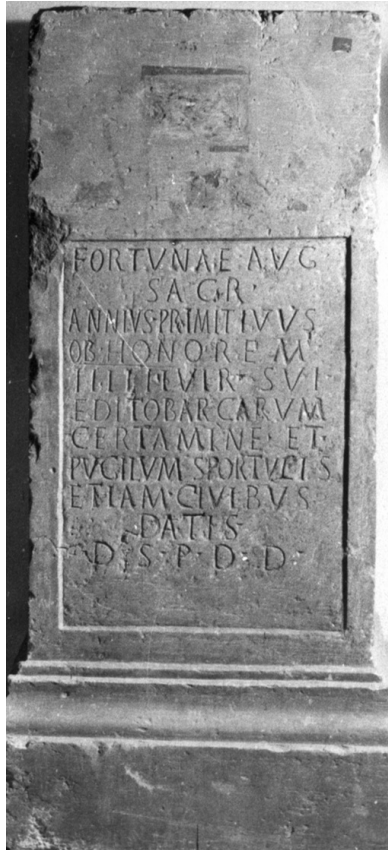 FORTVNAE·AVG
SACR·
ANNIVS·PRIMITIVVS
OB·HONOREM
IIIIIIVIR· SVI
EDITO BARCARVM
CERTAMINE· ET·
PVGILVM· SPORTVLIS
ETIAM· CIVIBVS
DATIS
D·S·P·D·D·